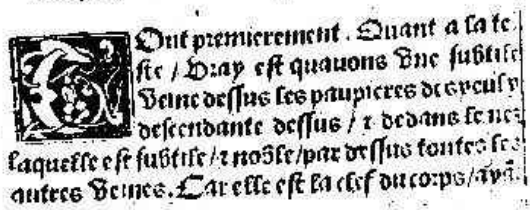 Tout premierement. Quant a la te-
ste / Vray est quauons Vne subtile
Veine dessus les paupieres des yeulx
descendante dessus / ⁊ dedans le nez
laquelle est subtile / ⁊ noble / par dessus toutes les
autres Veines. Car elle est la clef du corps / ayã